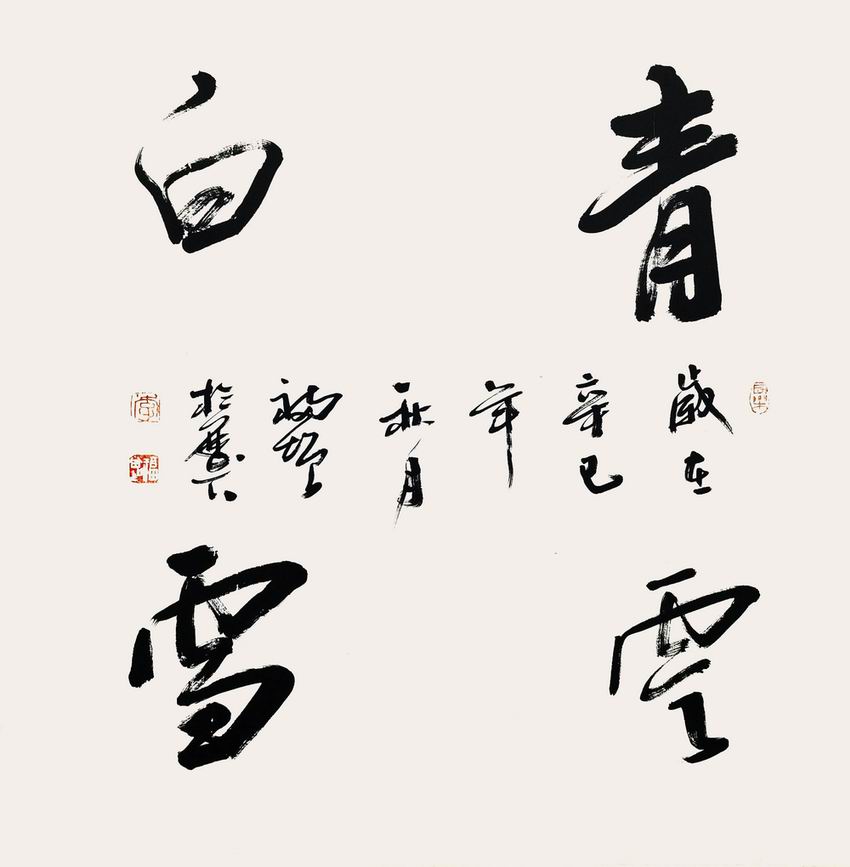 青雲
白雪
歲在
辛巳
年
秋月
於